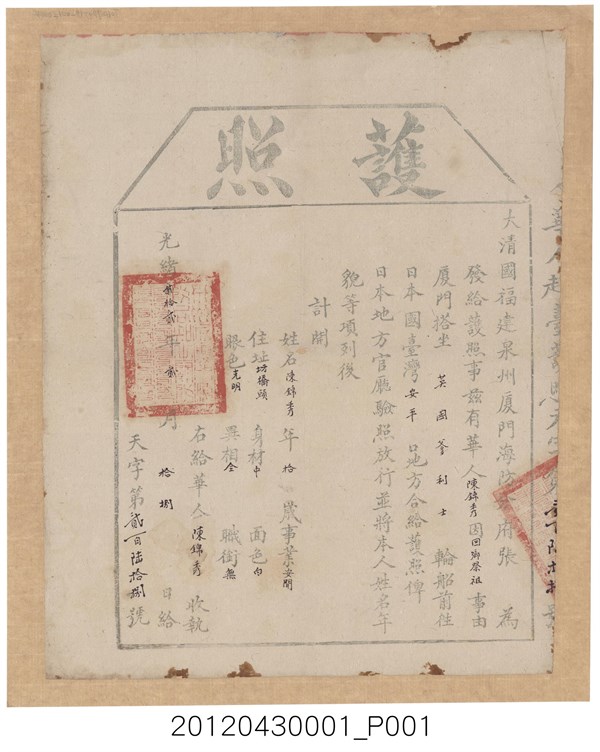 護照
大清國福建泉州厦門海防分府張 為
發給護照事茲有華人陳錦秀因回鄉祭祖事由
厦門搭坐 英國爹利士 輪船前往
日本國臺灣安平口地方合給護照俾
日本地方官廳驗照放行並將本人姓名年
貌等項列後
計開
姓名陳錦秀 年拾 歲事業安閒
住址坊橋頭 身材中 面色白
眼色光明 異相全 職銜無
右給華人陳錦秀 收執
光緒貳拾貳年 貳月 拾捌 日給
天字第貳百陸拾捌號
20120430001_P001